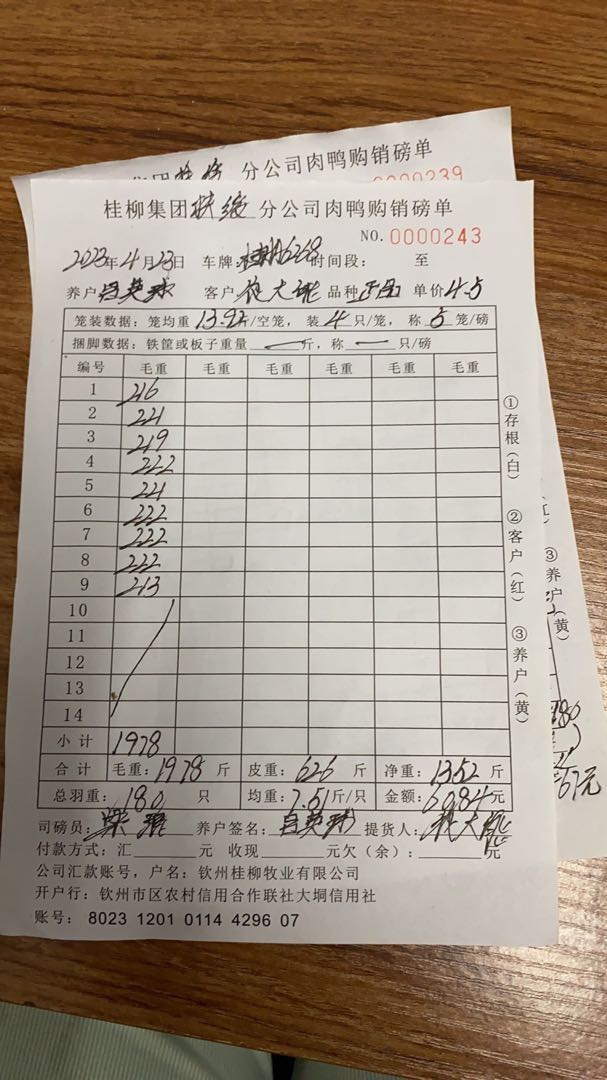 分公司肉鸭购销磅单
0000239
桂柳集团扶绥分公司肉鸭购销磅单
NO.0000243
2023年4月23日 车牌:桂 6268 时间段: 至
养户 英 客户 大 品种 单价4.5
笼装数据:笼均重13.92斤/空笼,装4只/笼,称5笼/磅
捆脚数据:铁筐或板子重量 — 斤,称 — 只/磅
编号 毛重 毛重 毛重 毛重 毛重 毛重
1 216
2 221
3 219
4 222
5 221
6 222
7 222
8 222
9 213
10
11
12
13
14
小计 1978
合计 毛重:1978斤 皮重:626斤 净重:1352斤
总羽重:180只 均重:7.51斤/只 金额:6084元
司磅员:梁 养户签名: 英 提货人: 大
付款方式:汇 元 收现 元欠(余): 元
公司汇款账号,户名:钦州桂柳牧业有限公司
开户行:钦州市区农村信用合作联社大垌信用社
账号:8023 1201 0114 4296 07
①存根(白)
②客户(红)
③养户(黄)
③养户(黄)
180
67元